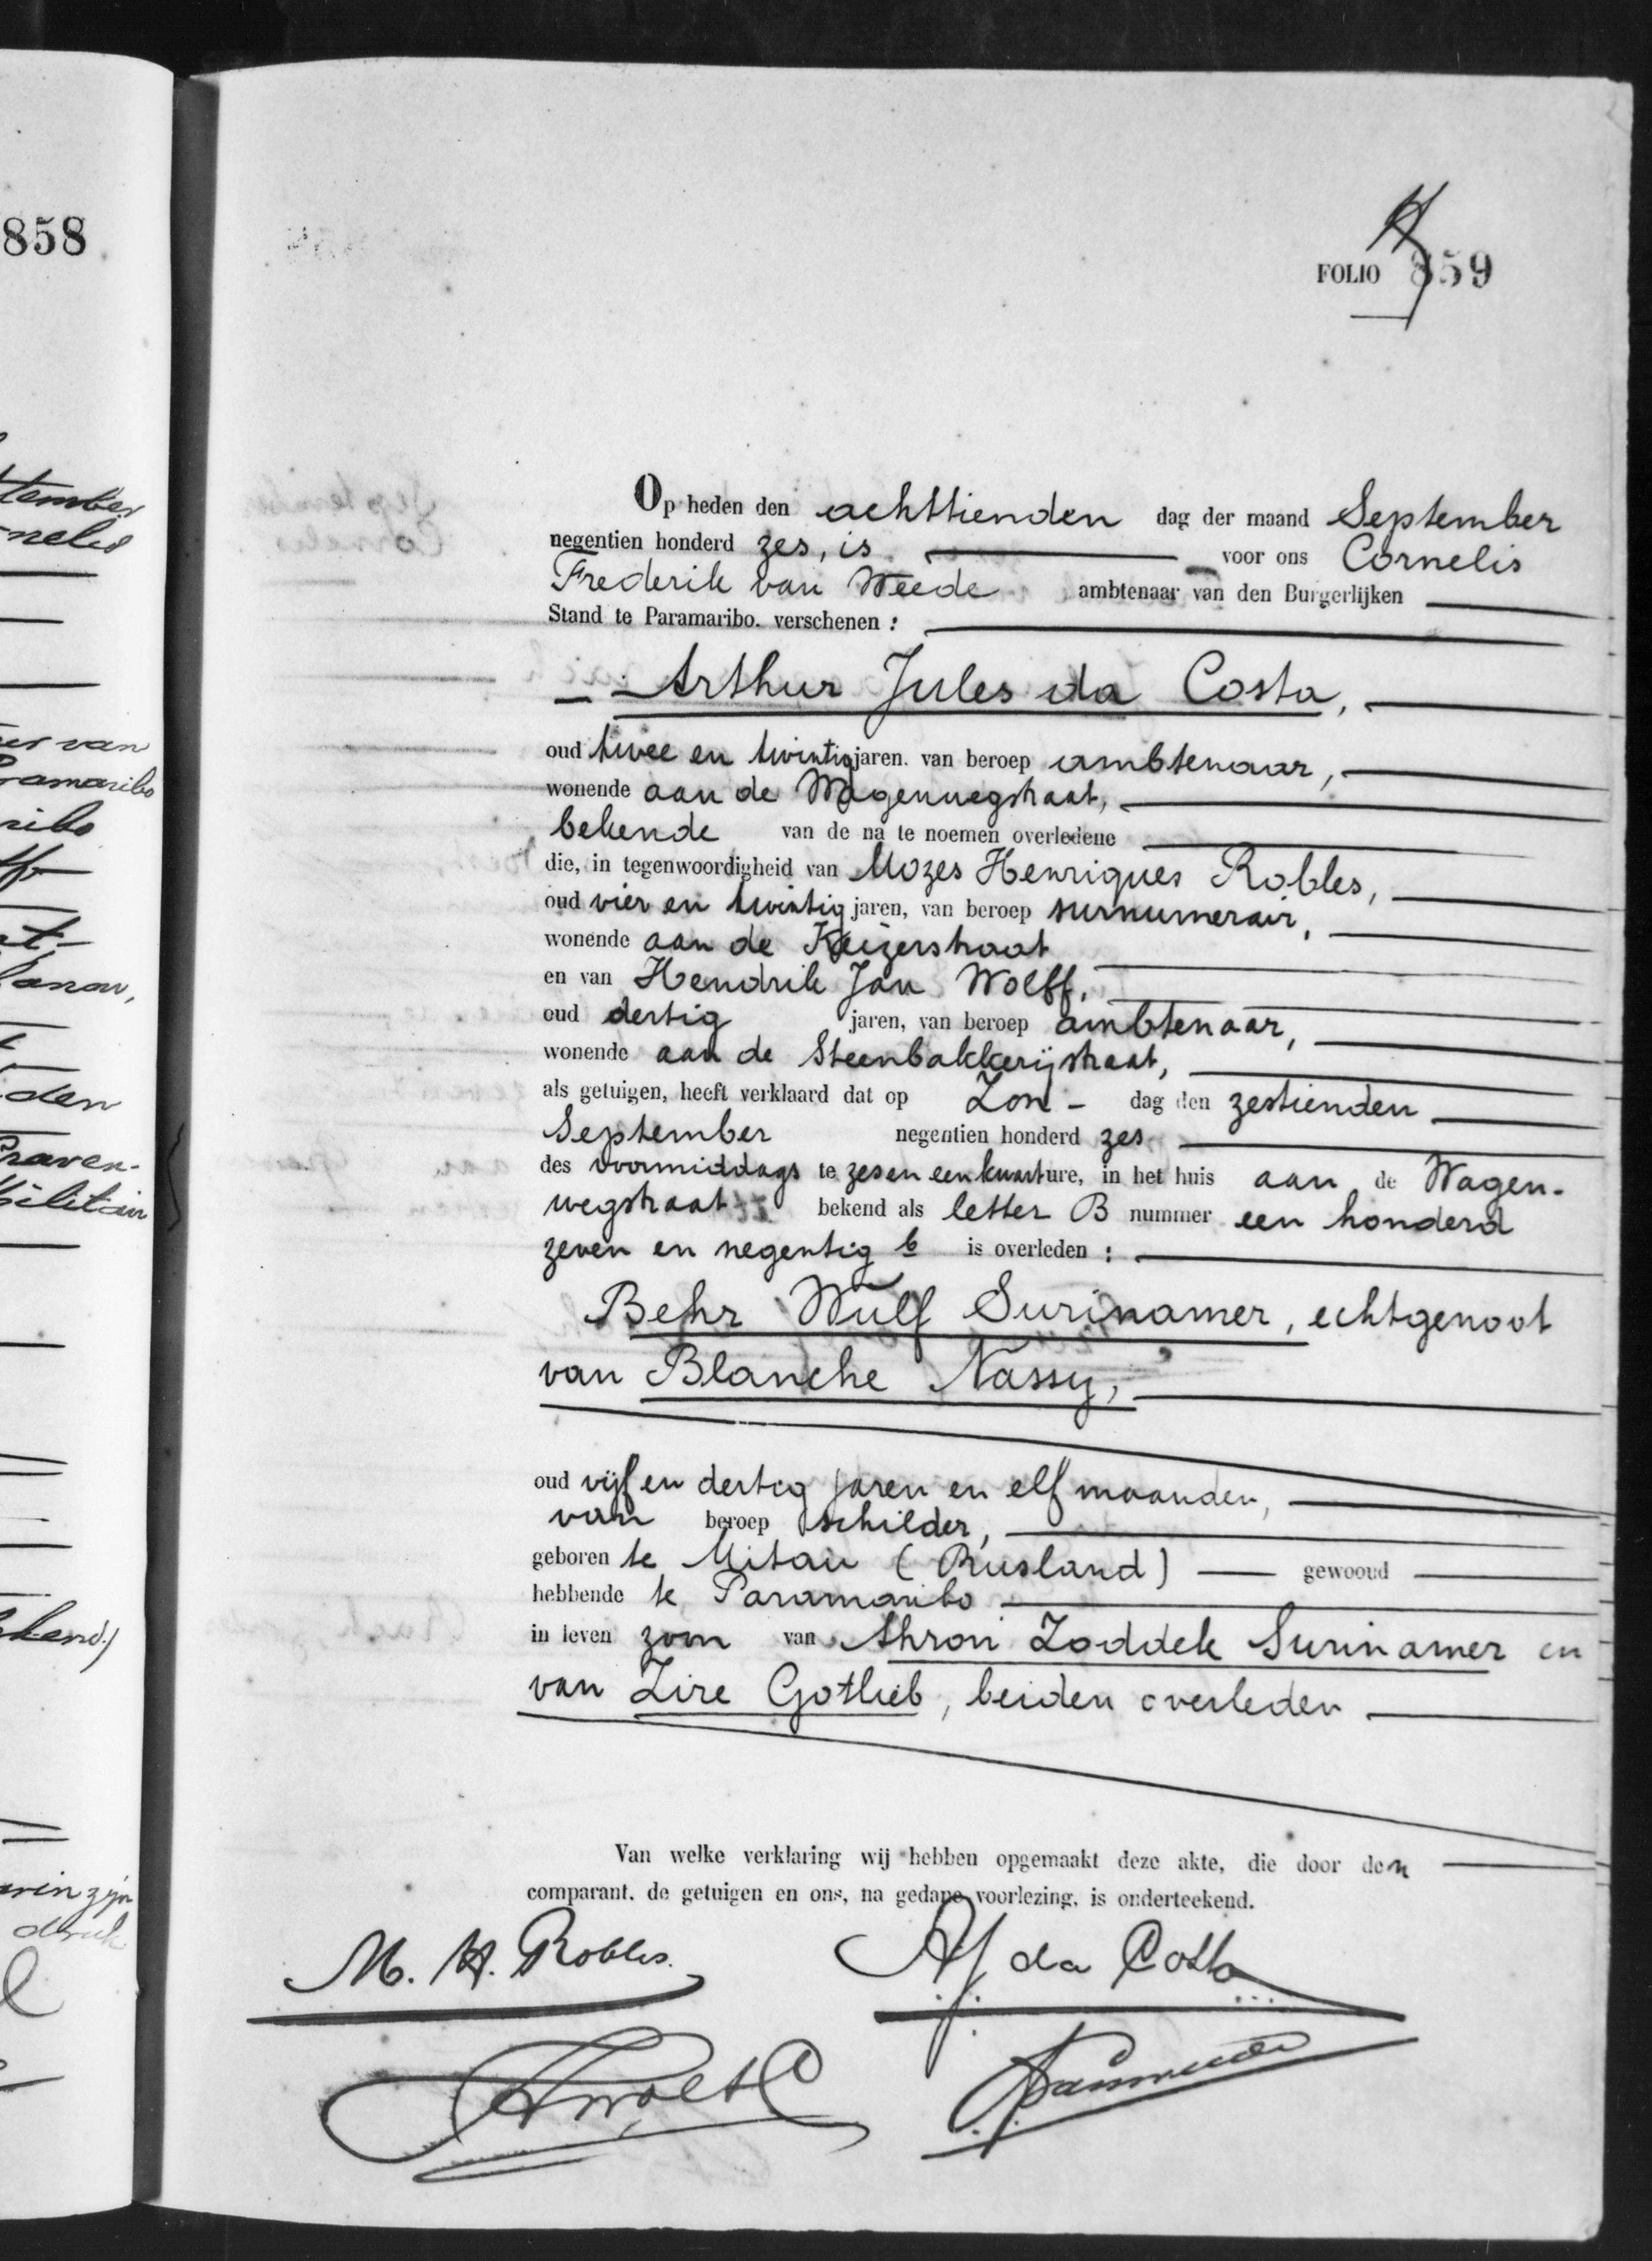 858
FOLIO 859
Op heden den achttienden dag der maand September
negentien honderd zes, is voor ons Cornelis
Frederik van Weede ambtenaar van den Burgerlijken
Stand te Paramaribo. verschenen :
Arthur Jules da Costa,
oud twee en twintig jaren. van beroep ambtenaar,
wonende aan de Wagenwegstraat,
bekende van de na te noemen overledene
die, in tegenwoordigheid van Mozes Henriques Robles,
oud vier en twintig jaren, van beroep surnumerair,
wonende aan de Keizerstraat
en van Hendrik Jan Wolff,
oud dertig jaren, van beroep ambtenaar,
wonende aan de Steenbakkerijstraat,
als getuigen, heeft verklaard dat op Zon- dag den zestienden
September negentien honderd zes
des voormiddags te zes en een kwart ure, in het huis aan de Wagen-
wegstraat bekend als letter B nummer een honderd
zeven en negentig b is overleden :
Behr Wulf Surinamer, echtgenoot
van Blanche Nassy,
oud vijf en dertig jaren en elf maanden,
van beroep schilder,
geboren te Mitau (Rusland) gewoond
hebbende te Paramaribo
in leven zoon van Ahron Zoddek Surinamer en
van Zire Gotlieb, beiden overleden
Van welke verklaring wij hebben opgemaakt deze akte, die door den
comparant. de getuigen en ons, na gedane voorlezing, is onderteekend.
M. H. Robles. AJ da Costa
HJWolff